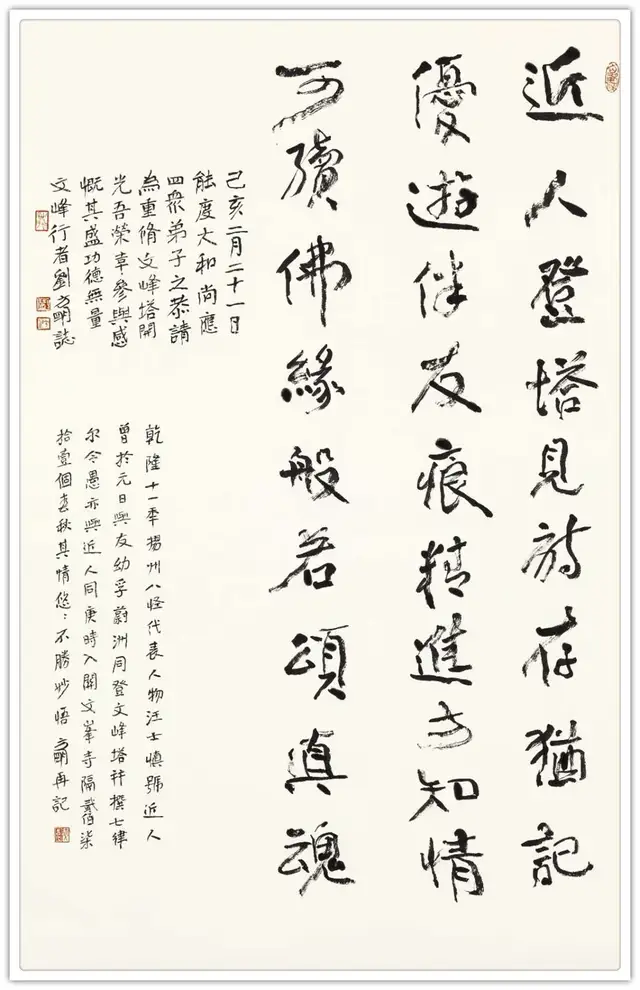 近人登塔見詩存猶記
優遊伴友痕精進方知情
可續佛緣般若頌真魂
己亥二月二十一日
能度大和尚應
四衆弟子之恭請
為重脩文峰塔開
光吾榮幸參與感
慨其盛功德無量
文峰行者劉方明誌
乾隆十一秊揚州八怪代表人物汪士慎號近人
曾於元日與友幼孚蔚洲同登文峰塔并撰七律
尔今愚亦與近人同庚時入關文峯寺隔貳佰柒
拾壹個春秋其情悠:不勝妙悟方明再記